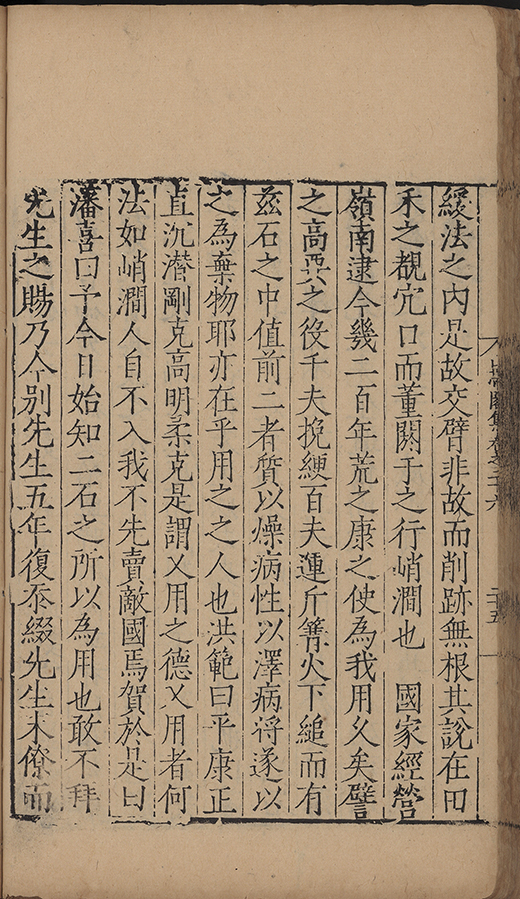 緩法之內是故交臂非故而削跡無根其說在田
禾之覩宂口而董閼于之行峭澗也　國家經營
嶺南逮今幾二百年荒之康之使為我用久矣譬
之高㒷之役千夫挽綆百夫運斤篝火下縋而有
兹石之中值前二者質以燥病性以澤病将遂以
之為棄物耶亦在乎用之之人也洪範曰平康正
直沉潛剛克高明柔克是謂乂用之德乂用者何
法如峭澗人自不入我不先賣敵國焉賀於是曰
潘喜曰予今日始知二石之所以為用也敢不拜
先生之賜乃今别先生五年復忝綴先生末僚而
集卷之三十六
二十五